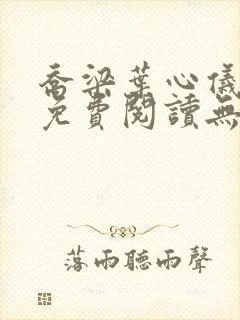 喬梁葉心儀
免費閱讀無
落雨聽雨聲